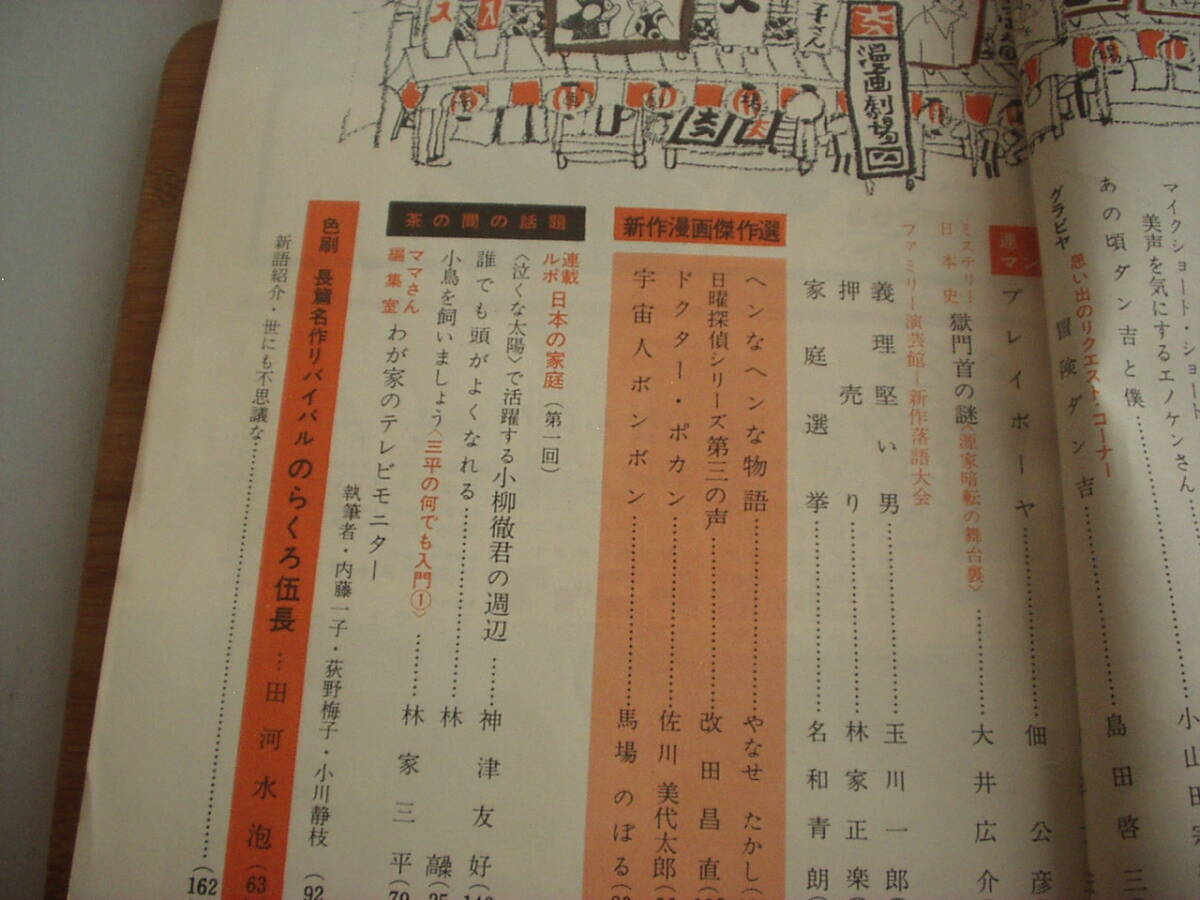 漫画劇場
マイクショート・ショート
美声を気にするエノケンさん……小山田宗
あの頃ダン吉と僕……島田啓三
グラビヤ 思い出のリクエスト・コーナー
冒険ダン吉
プレイボーヤ……佃公彦
ミステリー日本史 獄門首の謎〈源家暗転の舞台裏〉……大井広介
ファミリー演芸館―新作落語大会
義理堅い男……玉川一郎
押売り……林家正楽
家庭選挙……名和青朗
新作漫画傑作選
ヘンなヘンな物語……やなせたかし
日曜探偵シリーズ第三の声……改田昌直
ドクター・ポカン……佐川美代太郎
宇宙人ボンボン……馬場のぼる
茶の間の話題
連載ルポ 日本の家庭(第一回)
〈泣くな太陽〉で活躍する小柳徹君の週辺……神津友好
誰でも頭がよくなれる……林髞
小鳥を飼いましょう〈三平の何でも入門①〉……林家三平
ママさん編集室 わが家のテレビモニター
執筆者・内藤一子・荻野梅子・小川静枝(92
色刷 長篇名作リバイバル のらくろ伍長…田河水泡(63
新語紹介・世にも不思議な……(162